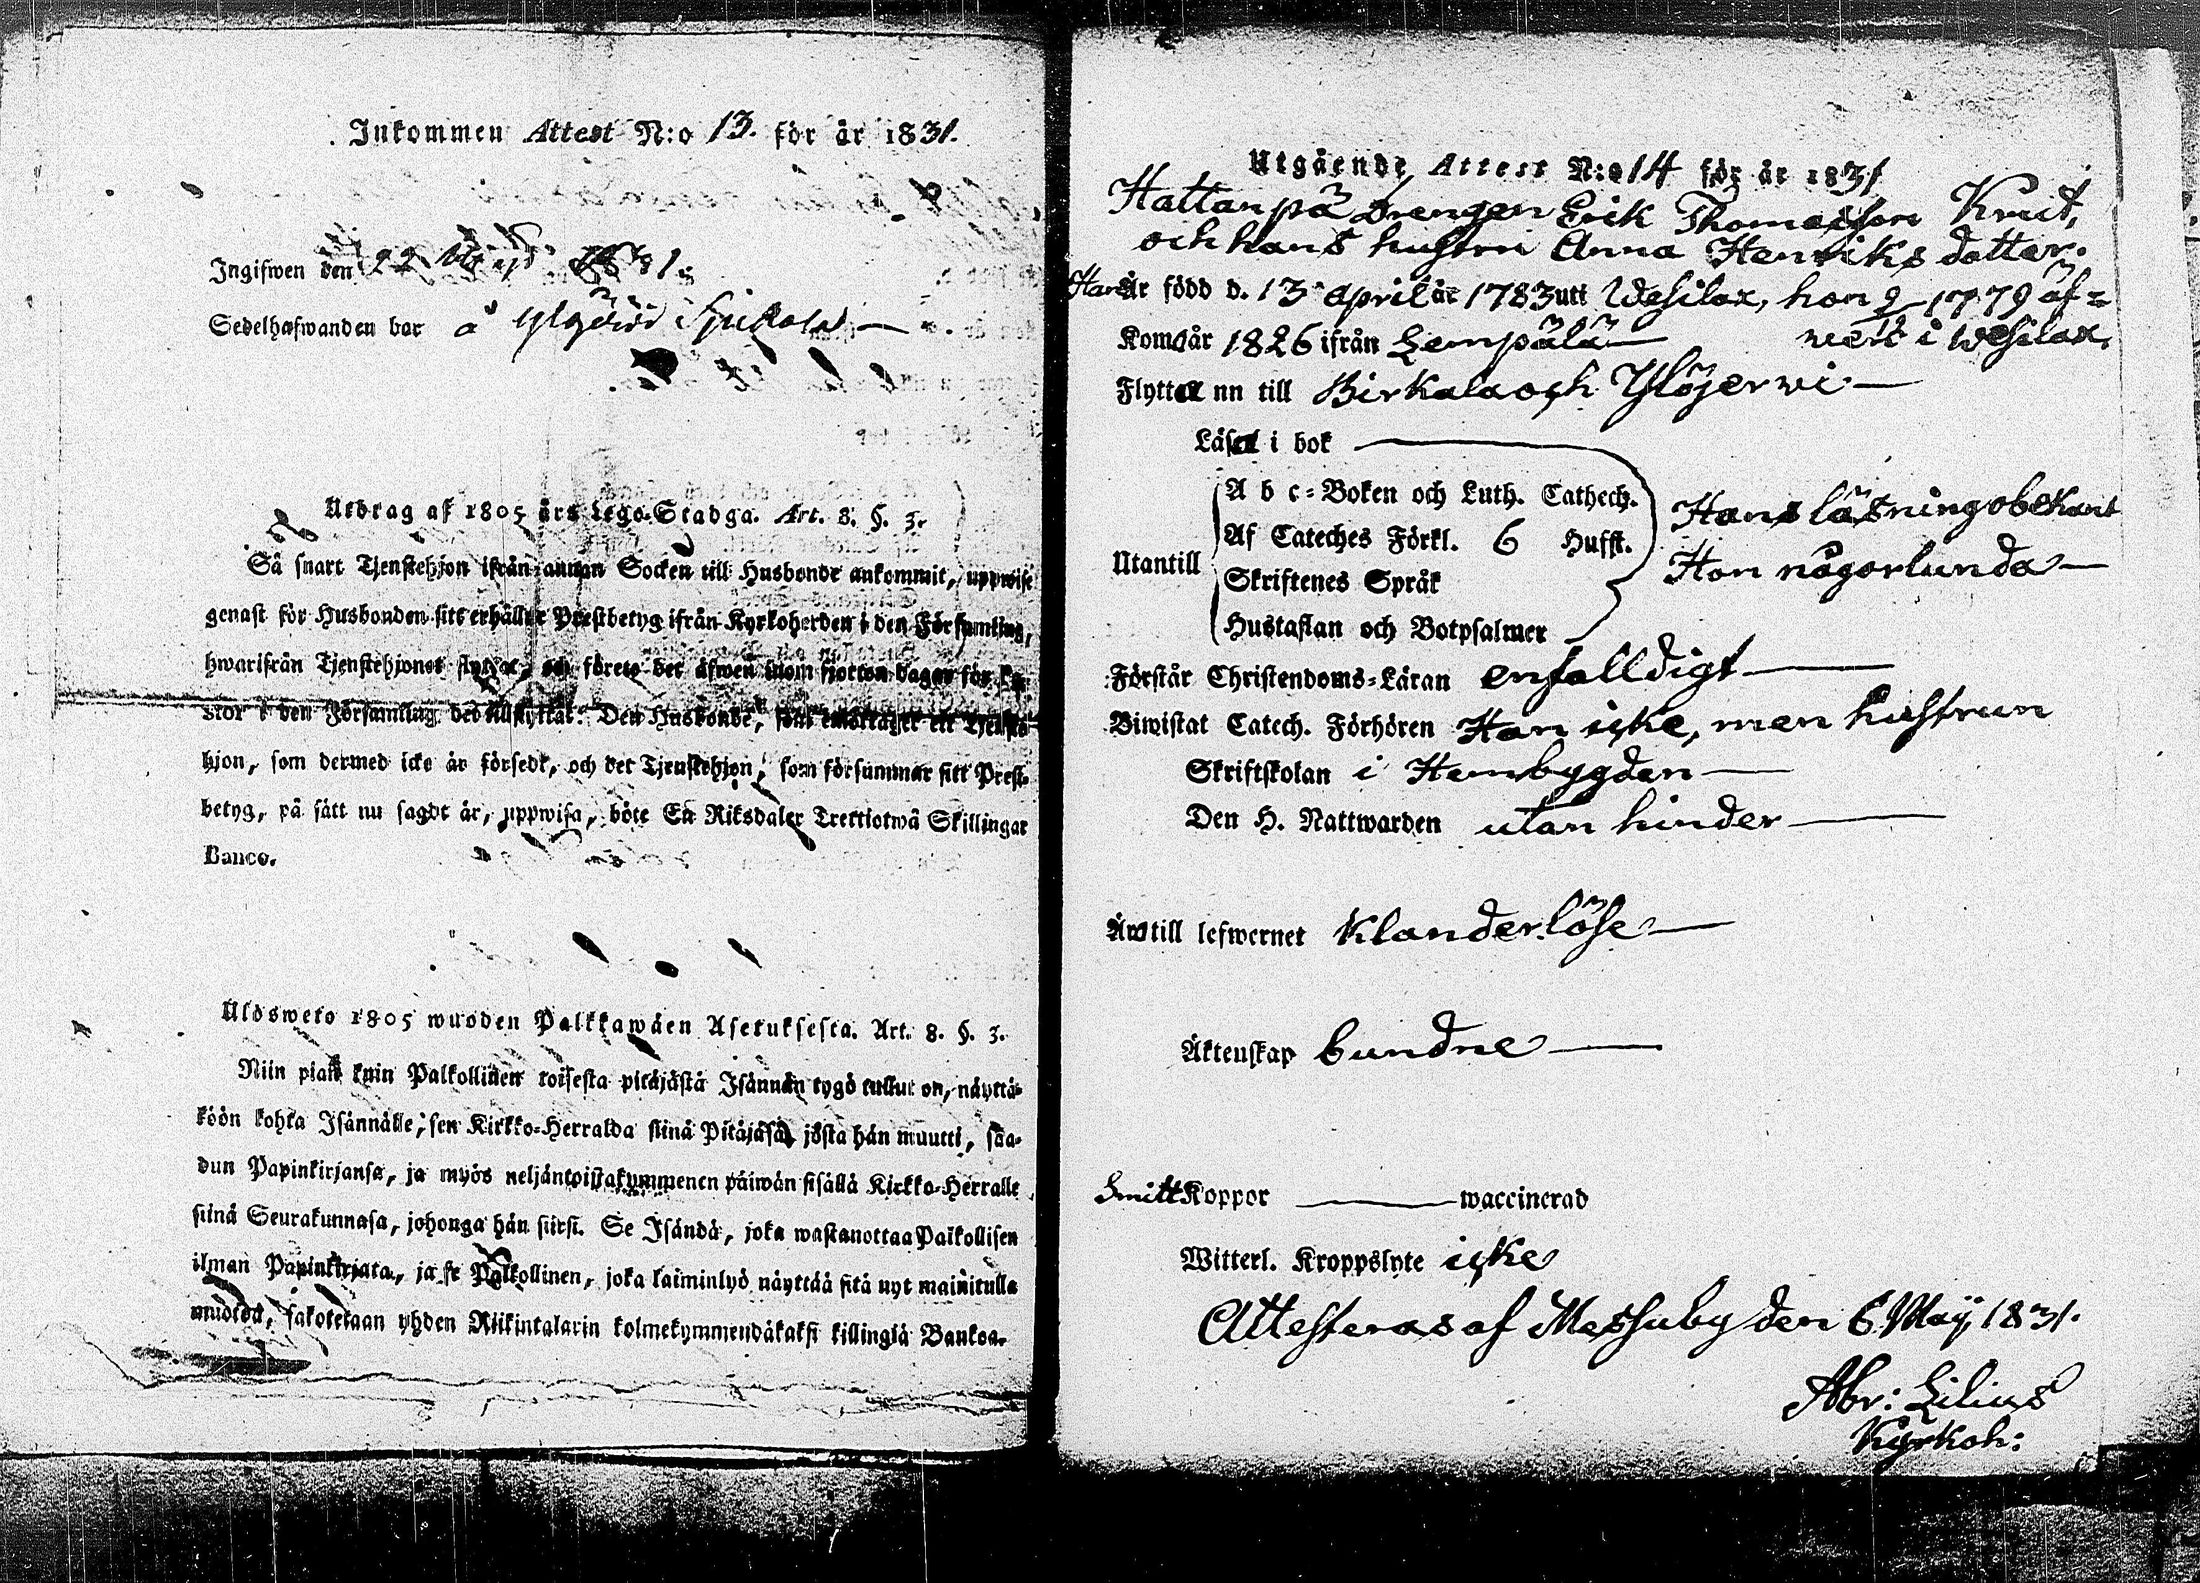 Inkommen Attest N:o 13. för år 1831.
Ingifwen den 22 1831.
Sedelhafwanden bor å Ylöjärvi
Utdrag af 1805 års Lego-Stadga. Art. 8. §. 3.
Så snart Tjenstehjon ifrån annan Socken till Husbonde ankommit, uppwise
genast för Husbonden sitt erhållne Prestbetyg ifrån Kyrkoherden i den Församling,
hwarifrån Tjenstehjonet flyttat, och förete det äfwen inom fjorton dagar för Pa-
stor i den Församling det tillflyttat. Den Husbonde, som emottager ett Tjenste-
hjon, som dermed icke är försedt, och det Tjenstehjon, som försummar sitt Prest-
betyg, på sätt nu sagdt är, uppwisa, böte En Riksdaler Trettiotwå Skillingar
Banco.
Uloswето 1805 wuoden Palkkawäen Asetuksesta. Art. 8. §. 3.
Niin pian kuin Palkollinen toisesta pitäjästä Isännän tygö tullut on, näyttä-
köön kohta Isännälle, sen Kirkko-Herralda siinä Pitäjäsä, josta hän muutti, saa-
dun Papinkirjansa, ja myös neljäntoistakymmenen päiwän sisällä Kirkko-Herralle
siinä Seurakunnasa, johonga hän siirsi. Se Isändä, joka wastanottaa Palkollisen
ilman Papinkirjata, ja se Palkollinen, joka laiminlyö näyttää sitä nyt mainitulla
muotoa, sakotetaan yhden Riikintalarin kolmekymmendäkaksi killingiä Bankoa.
Utgående Attest N:o 14 för år 1831
Hattanpä Drengen Erik Thomasson Krut,
och hans hustru Anna Henriks dotter.
Han Är född d. 13 April år 1783 uti Wesilax, hon 9 1779 äf=
wen i Wesilax.
Komo år 1826 ifrån Lempälä
Flytta nu till Birkala och Ylöjerwi
Läsa i bok
Utantill
A b c-Boken och Luth. Cathech.
Af Cateches Förkl. 6 Hufst.
Skriftenes Språk
Hustaflan och Botpsalmer
Hans läsning obekant
Hon någorlunda
Förstår Christendoms-Läran enfalldigt
Biwistat Catech. Förhören Han icke, men hustrun
Skriftskolan i Hembygden
Den H. Nattwarden utan hinder
Äro till lefwernet klanderlöse
Äktenskap bundne
Smitt Koppor waccinerad
Witterl. Kroppslyte icke
Attesteras af Messuby den 6 May 1831.
Abr: Lilius
Kyrkoh: